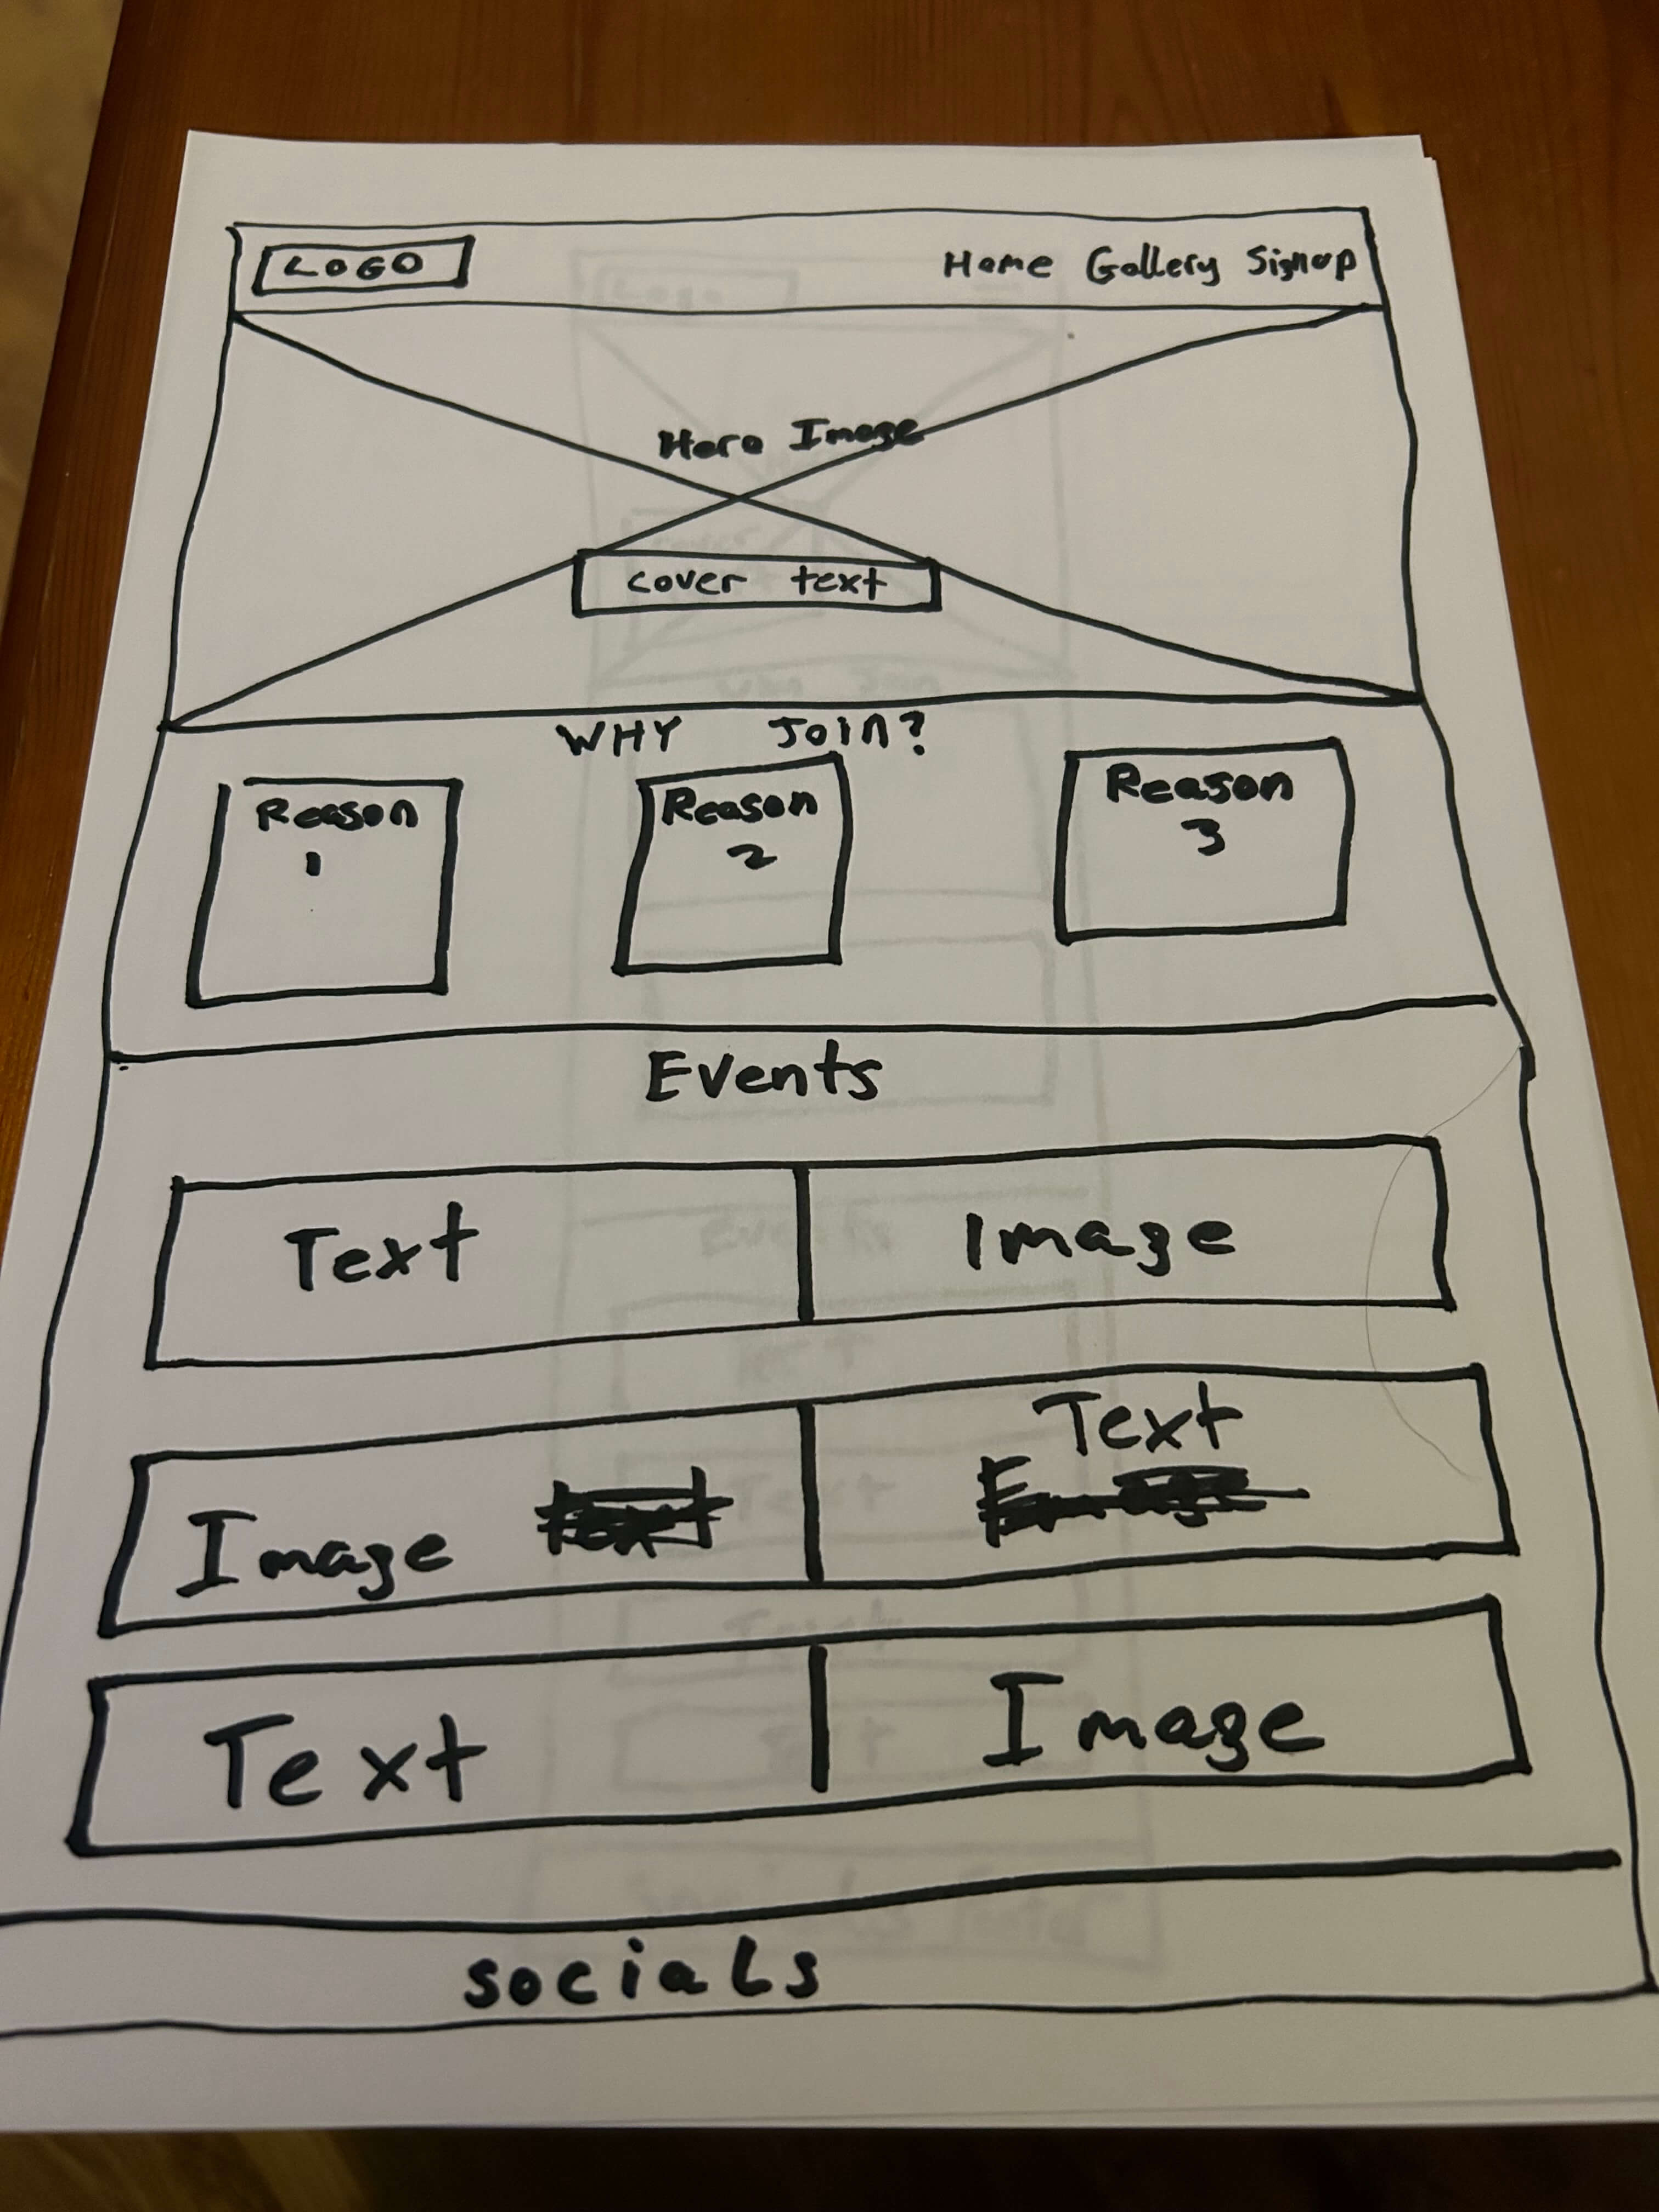 LOGO
Home Gallery Signup
Hero Image
cover text
WHY JOIN?
Reason
1
Reason
2
Reason
3
Events
Text
Image
Image
Text
Text
Image
socials